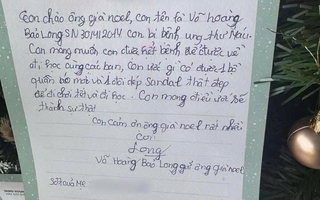 Con chào ông già noel, con tên là Võ hoàng
Bảo Long SN 30/4/2014 Con bị bệnh ung thư Máu.
Con mong muốn con được hết bệnh để được về
đi học cùng các bạn, Con ước gì có được 1 bộ
quần áo mới và 1 đôi dép Sandal thật đẹp
để đi chơi tết và đi học. Con mong điều ước sẽ
thành sự thật
Con cảm ơn ông già noel rất nhiều
Con
Long
Võ Hoàng Bảo Long gửi ông già noel